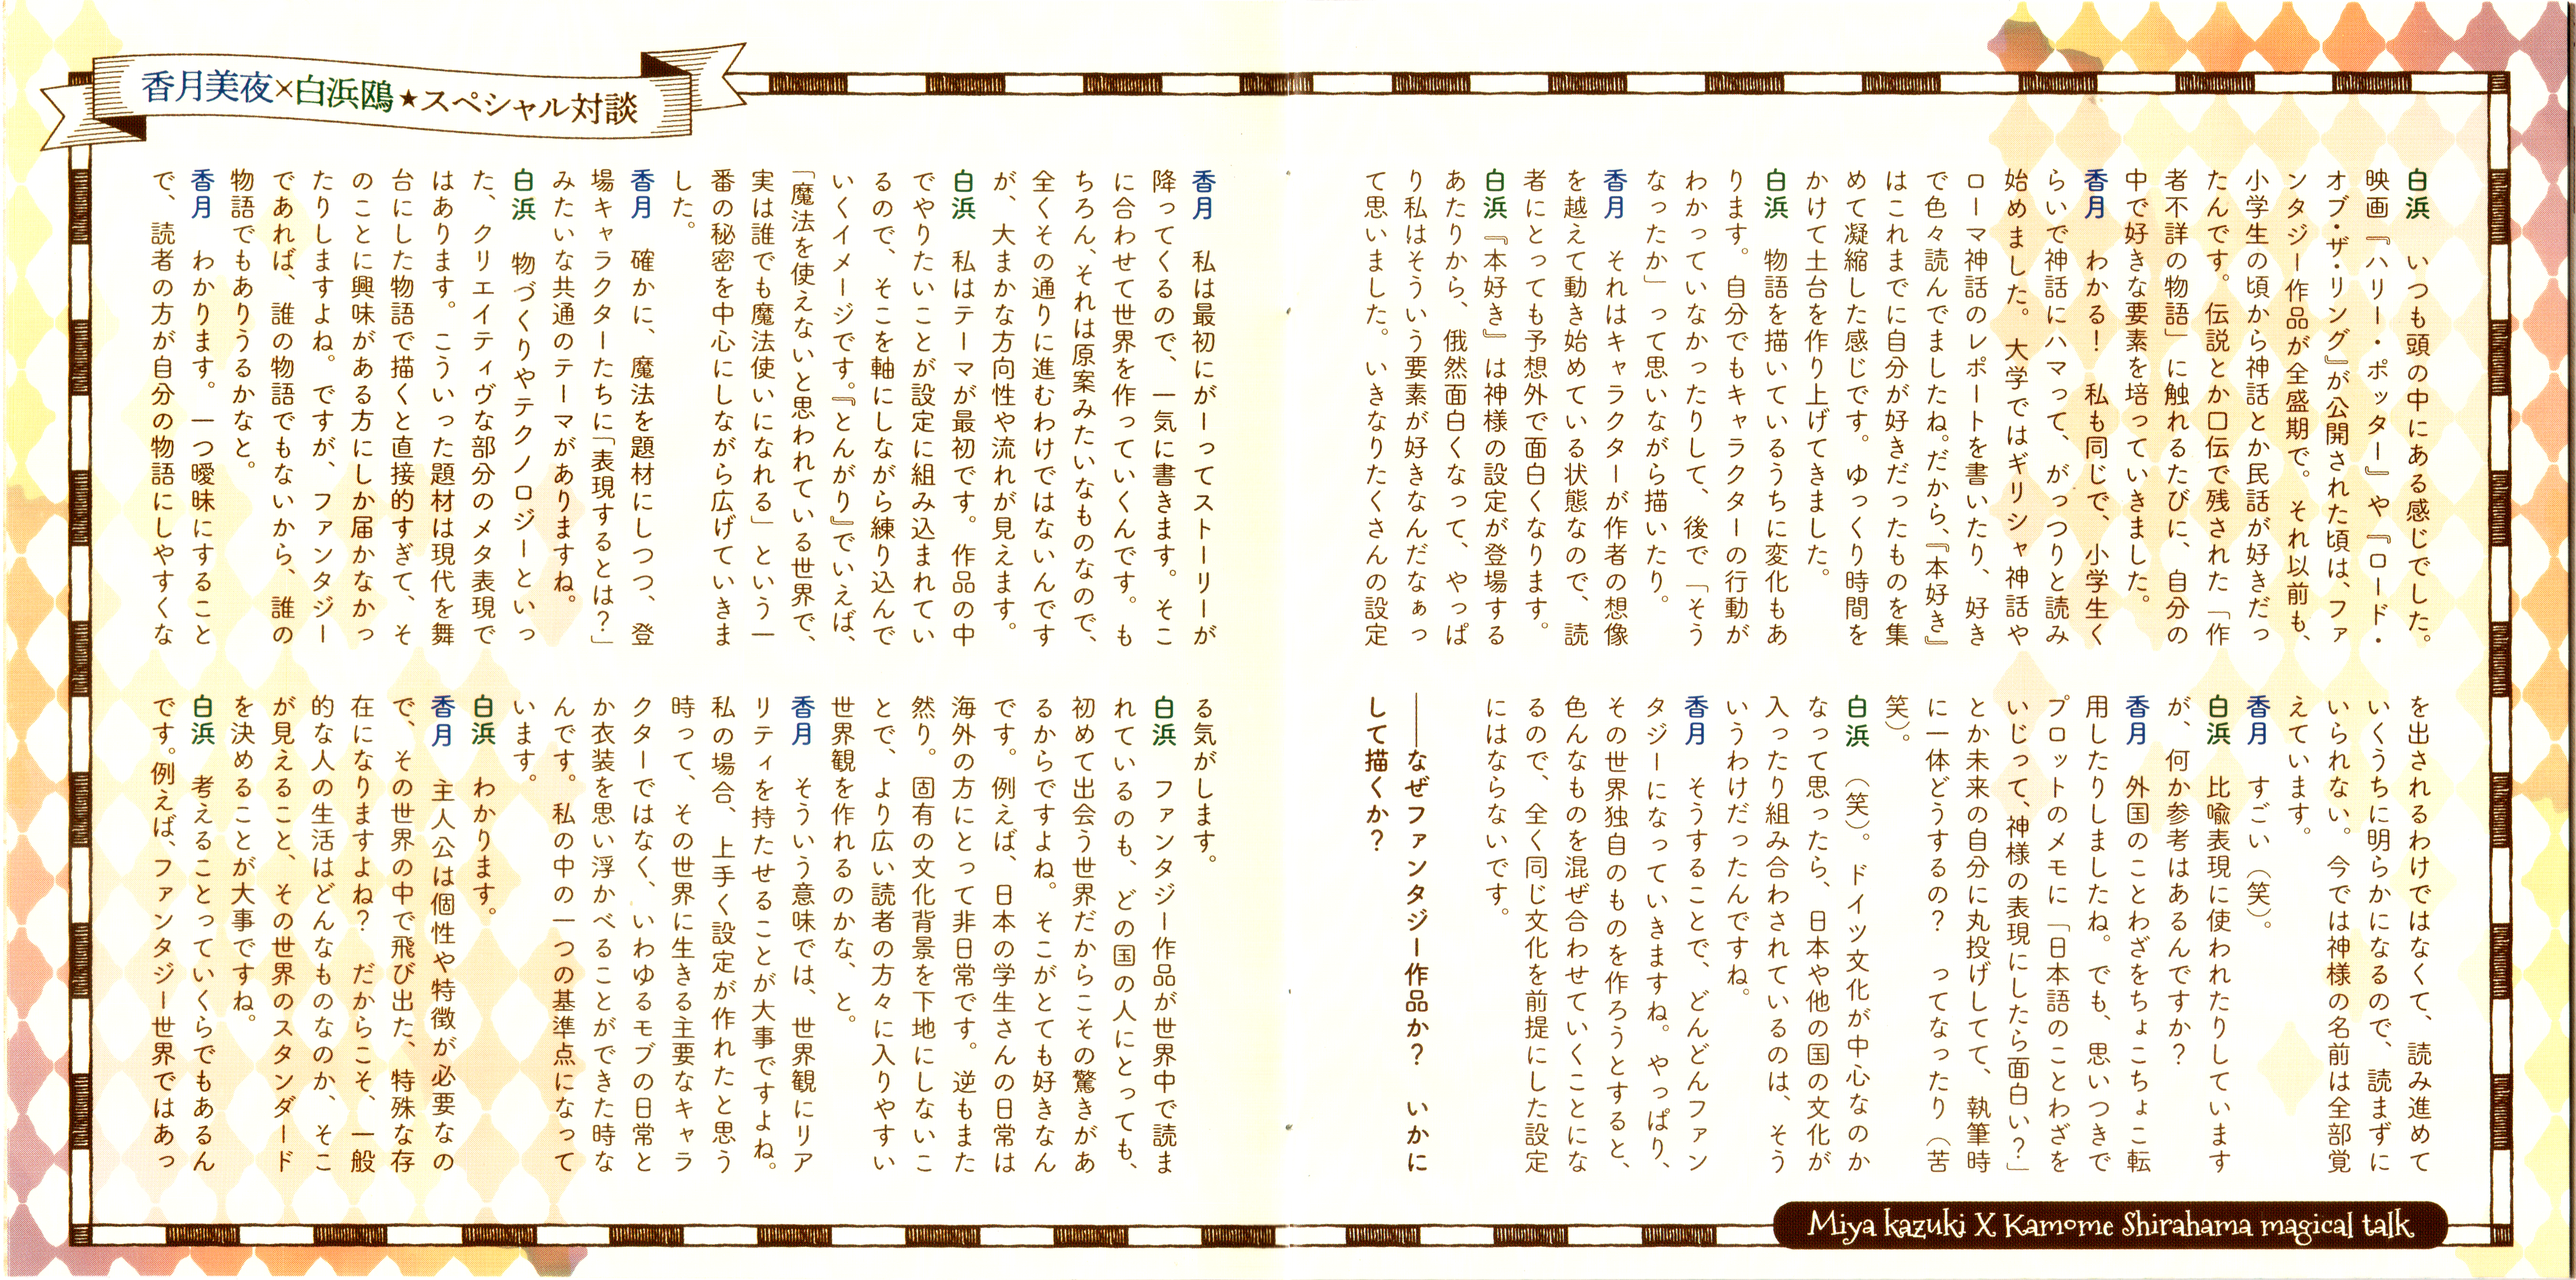 香月美夜×白浜鴎★スペシャル対談
白浜　いつも頭の中にある感じでした。
映画『ハリー・ポッター』や『ロード・
オブ・ザ・リング』が公開された頃は、ファ
ンタジー作品が全盛期で。それ以前も、
小学生の頃から神話とか民話が好きだっ
たんです。伝説とか口伝で残された「作
者不詳の物語」に触れるたびに、自分の
中で好きな要素を培っていきました。
香月　わかる！　私も同じで、小学生く
らいで神話にハマって、がっつりと読み
始めました。大学ではギリシャ神話や
ローマ神話のレポートを書いたり、好き
で色々読んでましたね。だから、『本好き』
はこれまでに自分が好きだったものを集
めて凝縮した感じです。ゆっくり時間を
かけて土台を作り上げてきました。
白浜　物語を描いているうちに変化もあ
ります。自分でもキャラクターの行動が
わかっていなかったりして、後で「そう
なったか」って思いながら描いたり。
香月　それはキャラクターが作者の想像
を越えて動き始めている状態なので、読
者にとっても予想外で面白くなります。
白浜　『本好き』は神様の設定が登場する
あたりから、俄然面白くなって、やっぱ
り私はそういう要素が好きなんだなぁっ
て思いました。いきなりたくさんの設定
を出されるわけではなくて、読み進めて
いくうちに明らかになるので、読まずに
いられない。今では神様の名前は全部覚
えています。
香月　すごい（笑）。
白浜　比喩表現に使われたりしています
が、何か参考はあるんですか？
香月　外国のことわざをちょこちょこ転
用したりしましたね。でも、思いつきで
プロットのメモに「日本語のことわざを
いじって、神様の表現にしたら面白い？」
とか未来の自分に丸投げしてて、執筆時
に一体どうするの？　ってなったり（苦
笑）。
白浜　（笑）。ドイツ文化が中心なのか
なって思ったら、日本や他の国の文化が
入ったり組み合わされているのは、そう
いうわけだったんですね。
香月　そうすることで、どんどんファン
タジーになっていきますね。やっぱり、
その世界独自のものを作ろうとすると、
色んなものを混ぜ合わせていくことにな
るので、全く同じ文化を前提にした設定
にはならないです。
――なぜファンタジー作品か？　いかに
して描くか？
香月　私は最初にがーってストーリーが
降ってくるので、一気に書きます。そこ
に合わせて世界を作っていくんです。も
ちろん、それは原案みたいなものなので、
全くその通りに進むわけではないんです
が、大まかな方向性や流れが見えます。
白浜　私はテーマが最初です。作品の中
でやりたいことが設定に組み込まれてい
るので、そこを軸にしながら練り込んで
いくイメージです。『とんがり』でいえば、
「魔法を使えないと思われている世界で、
実は誰でも魔法使いになれる」という一
番の秘密を中心にしながら広げていきま
した。
香月　確かに、魔法を題材にしつつ、登
場キャラクターたちに「表現するとは？」
みたいな共通のテーマがありますね。
白浜　物づくりやテクノロジーといっ
た、クリエイティヴな部分のメタ表現で
はあります。こういった題材は現代を舞
台にした物語で描くと直接的すぎて、そ
のことに興味がある方にしか届かなかっ
たりしますよね。ですが、ファンタジー
であれば、誰の物語でもないから、誰の
物語でもありうるかなと。
香月　わかります。一つ曖昧にすること
で、読者の方が自分の物語にしやすくな
る気がします。
白浜　ファンタジー作品が世界中で読ま
れているのも、どの国の人にとっても、
初めて出会う世界だからこその驚きがあ
るからですよね。そこがとても好きなん
です。例えば、日本の学生さんの日常は
海外の方にとって非日常です。逆もまた
然り。固有の文化背景を下地にしないこ
とで、より広い読者の方々に入りやすい
世界観を作れるのかな、と。
香月　そういう意味では、世界観にリア
リティを持たせることが大事ですよね。
私の場合、上手く設定が作れたと思う
時って、その世界に生きる主要なキャラ
クターではなく、いわゆるモブの日常と
か衣装を思い浮かべることができた時な
んです。私の中の一つの基準点になって
います。
白浜　わかります。
香月　主人公は個性や特徴が必要なの
で、その世界の中で飛び出た、特殊な存
在になりますよね？　だからこそ、一般
的な人の生活はどんなものなのか、そこ
が見えること、その世界のスタンダード
を決めることが大事ですね。
白浜　考えることっていくらでもあるん
です。例えば、ファンタジー世界ではあっ
Miya kazuki X Kamome Shirahama magical talk